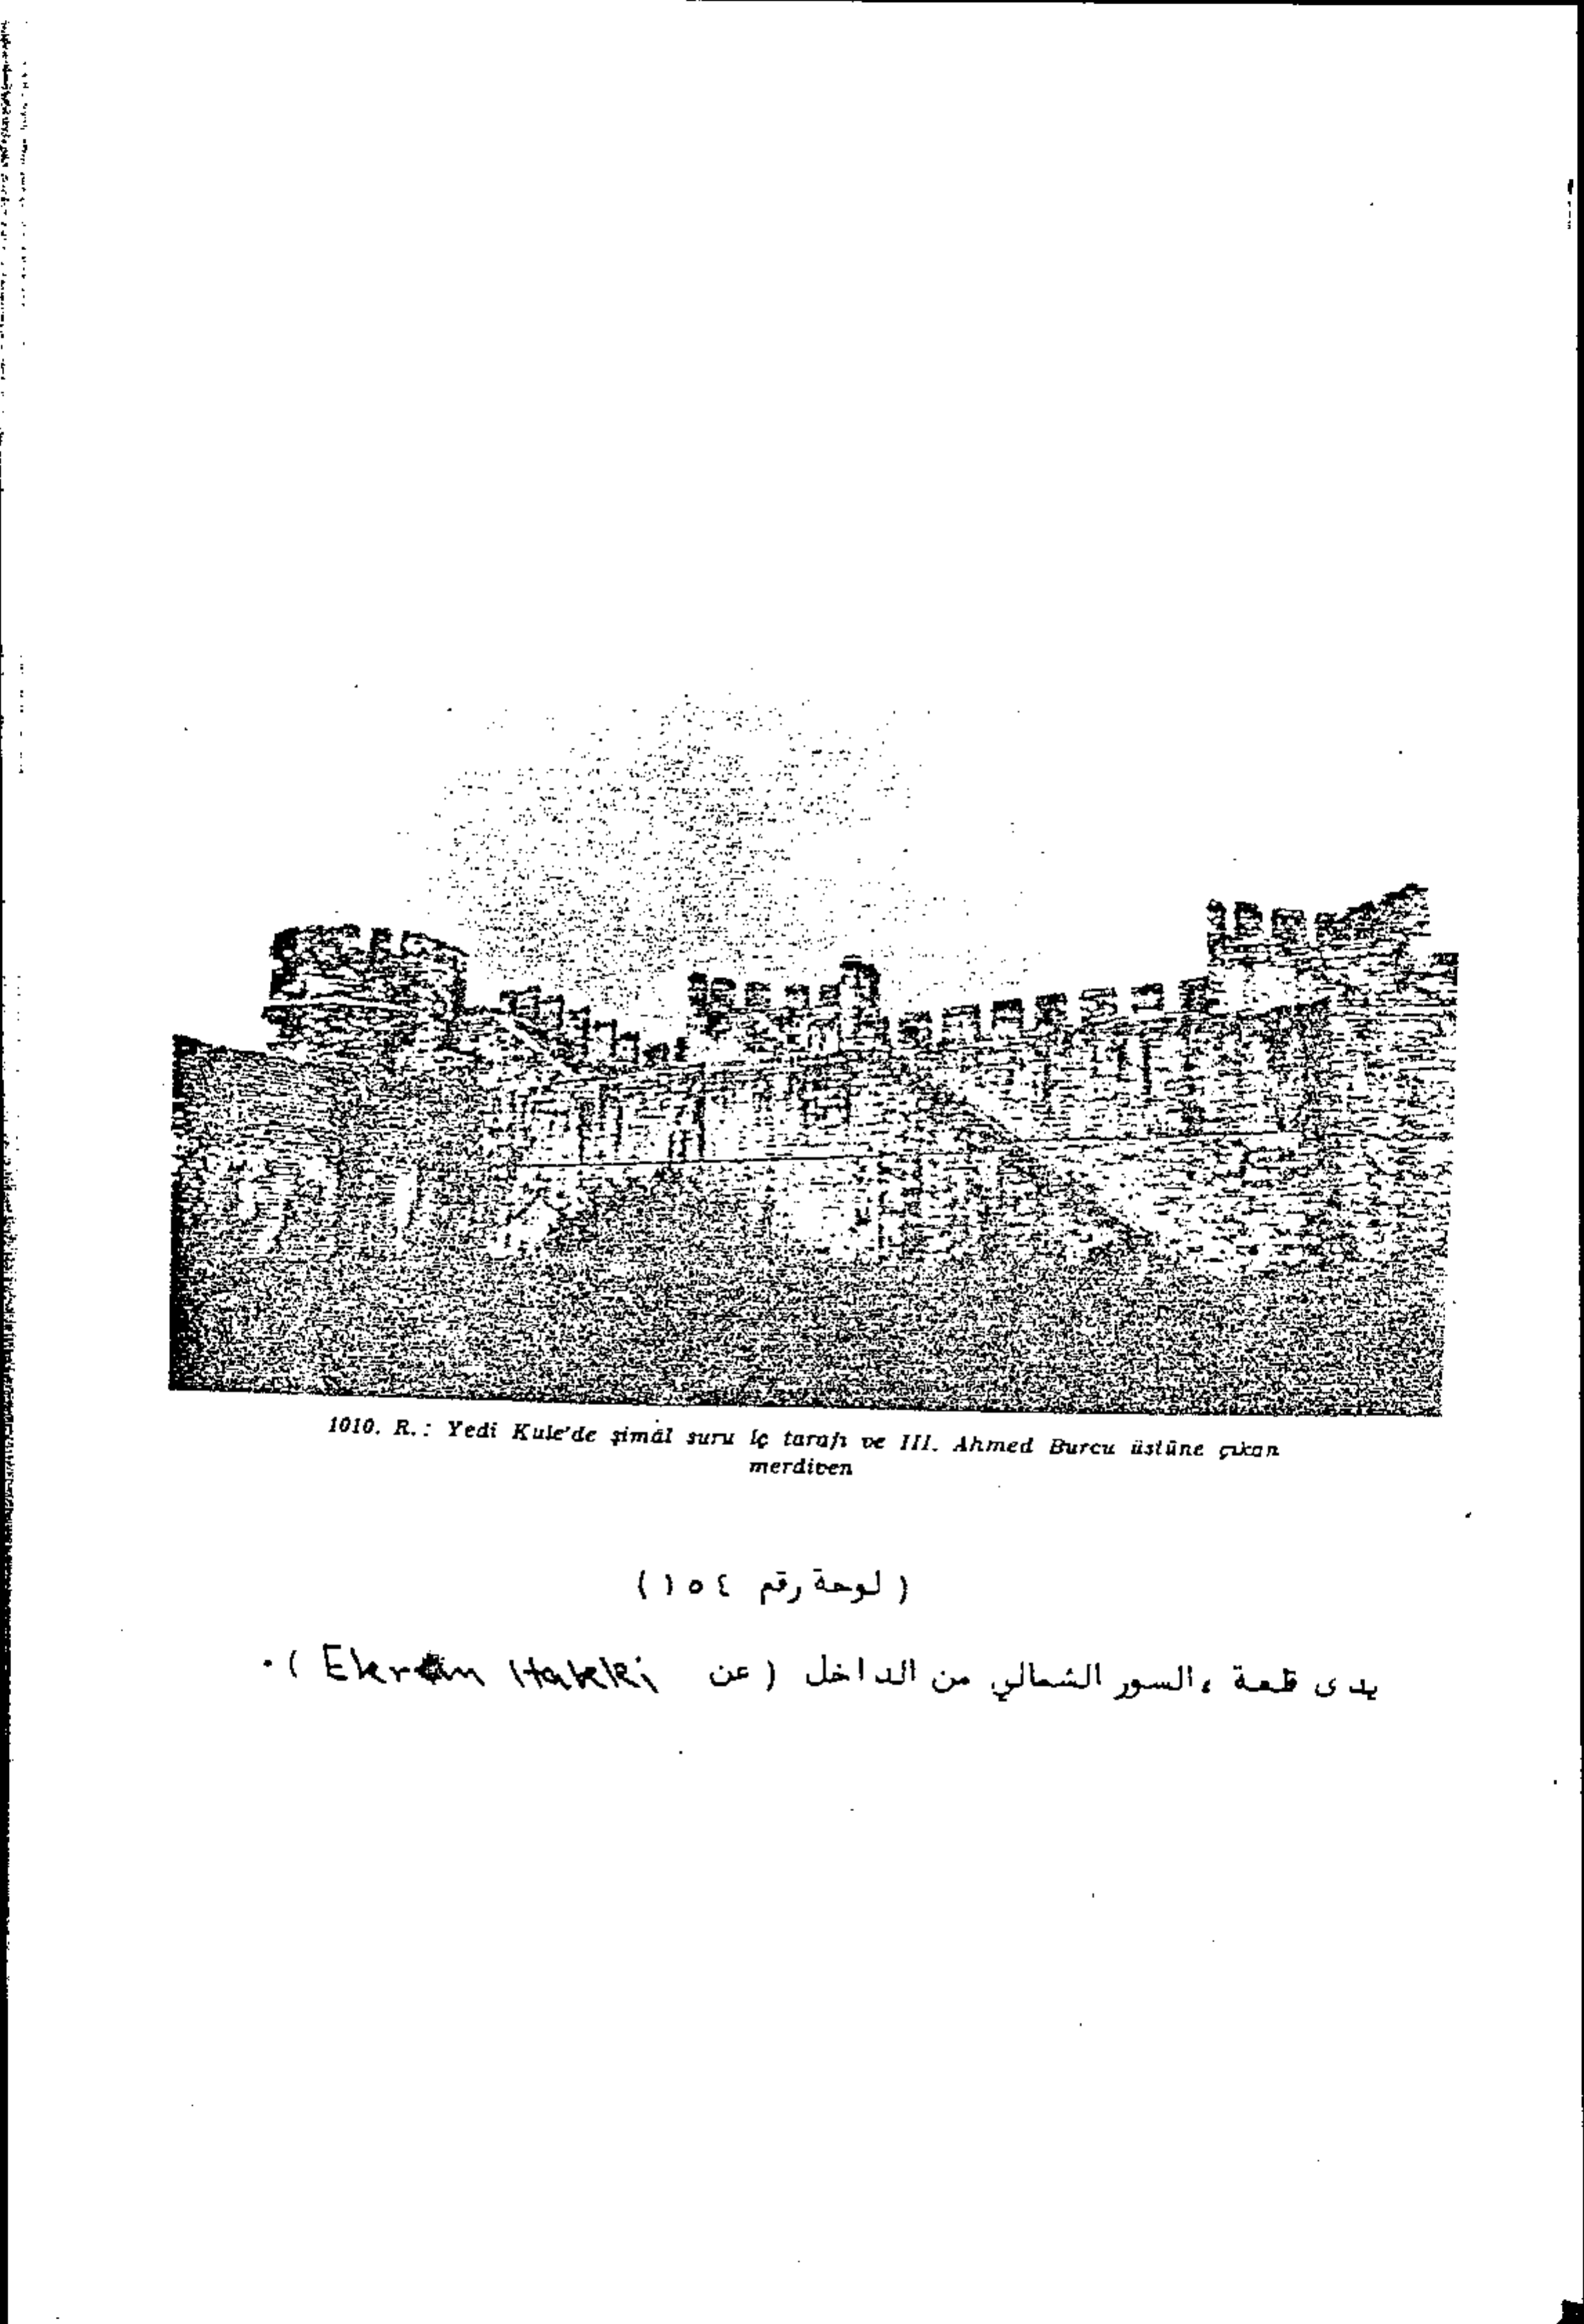 1010. R.: Yedi Kule'de şimâl suru iç tarafı ve III. Ahmed Burcu üstüne çıkan
merdiven
( لوحة رقم ١٥٤ )
يدى قلعة ، السور الشمالي من الداخل ( عن Ekrem Hakki ) .